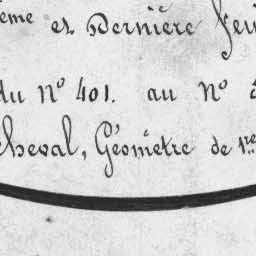 ème et Dernière Feui
du N° 401. au N°
cheval, Géomètre de 1re